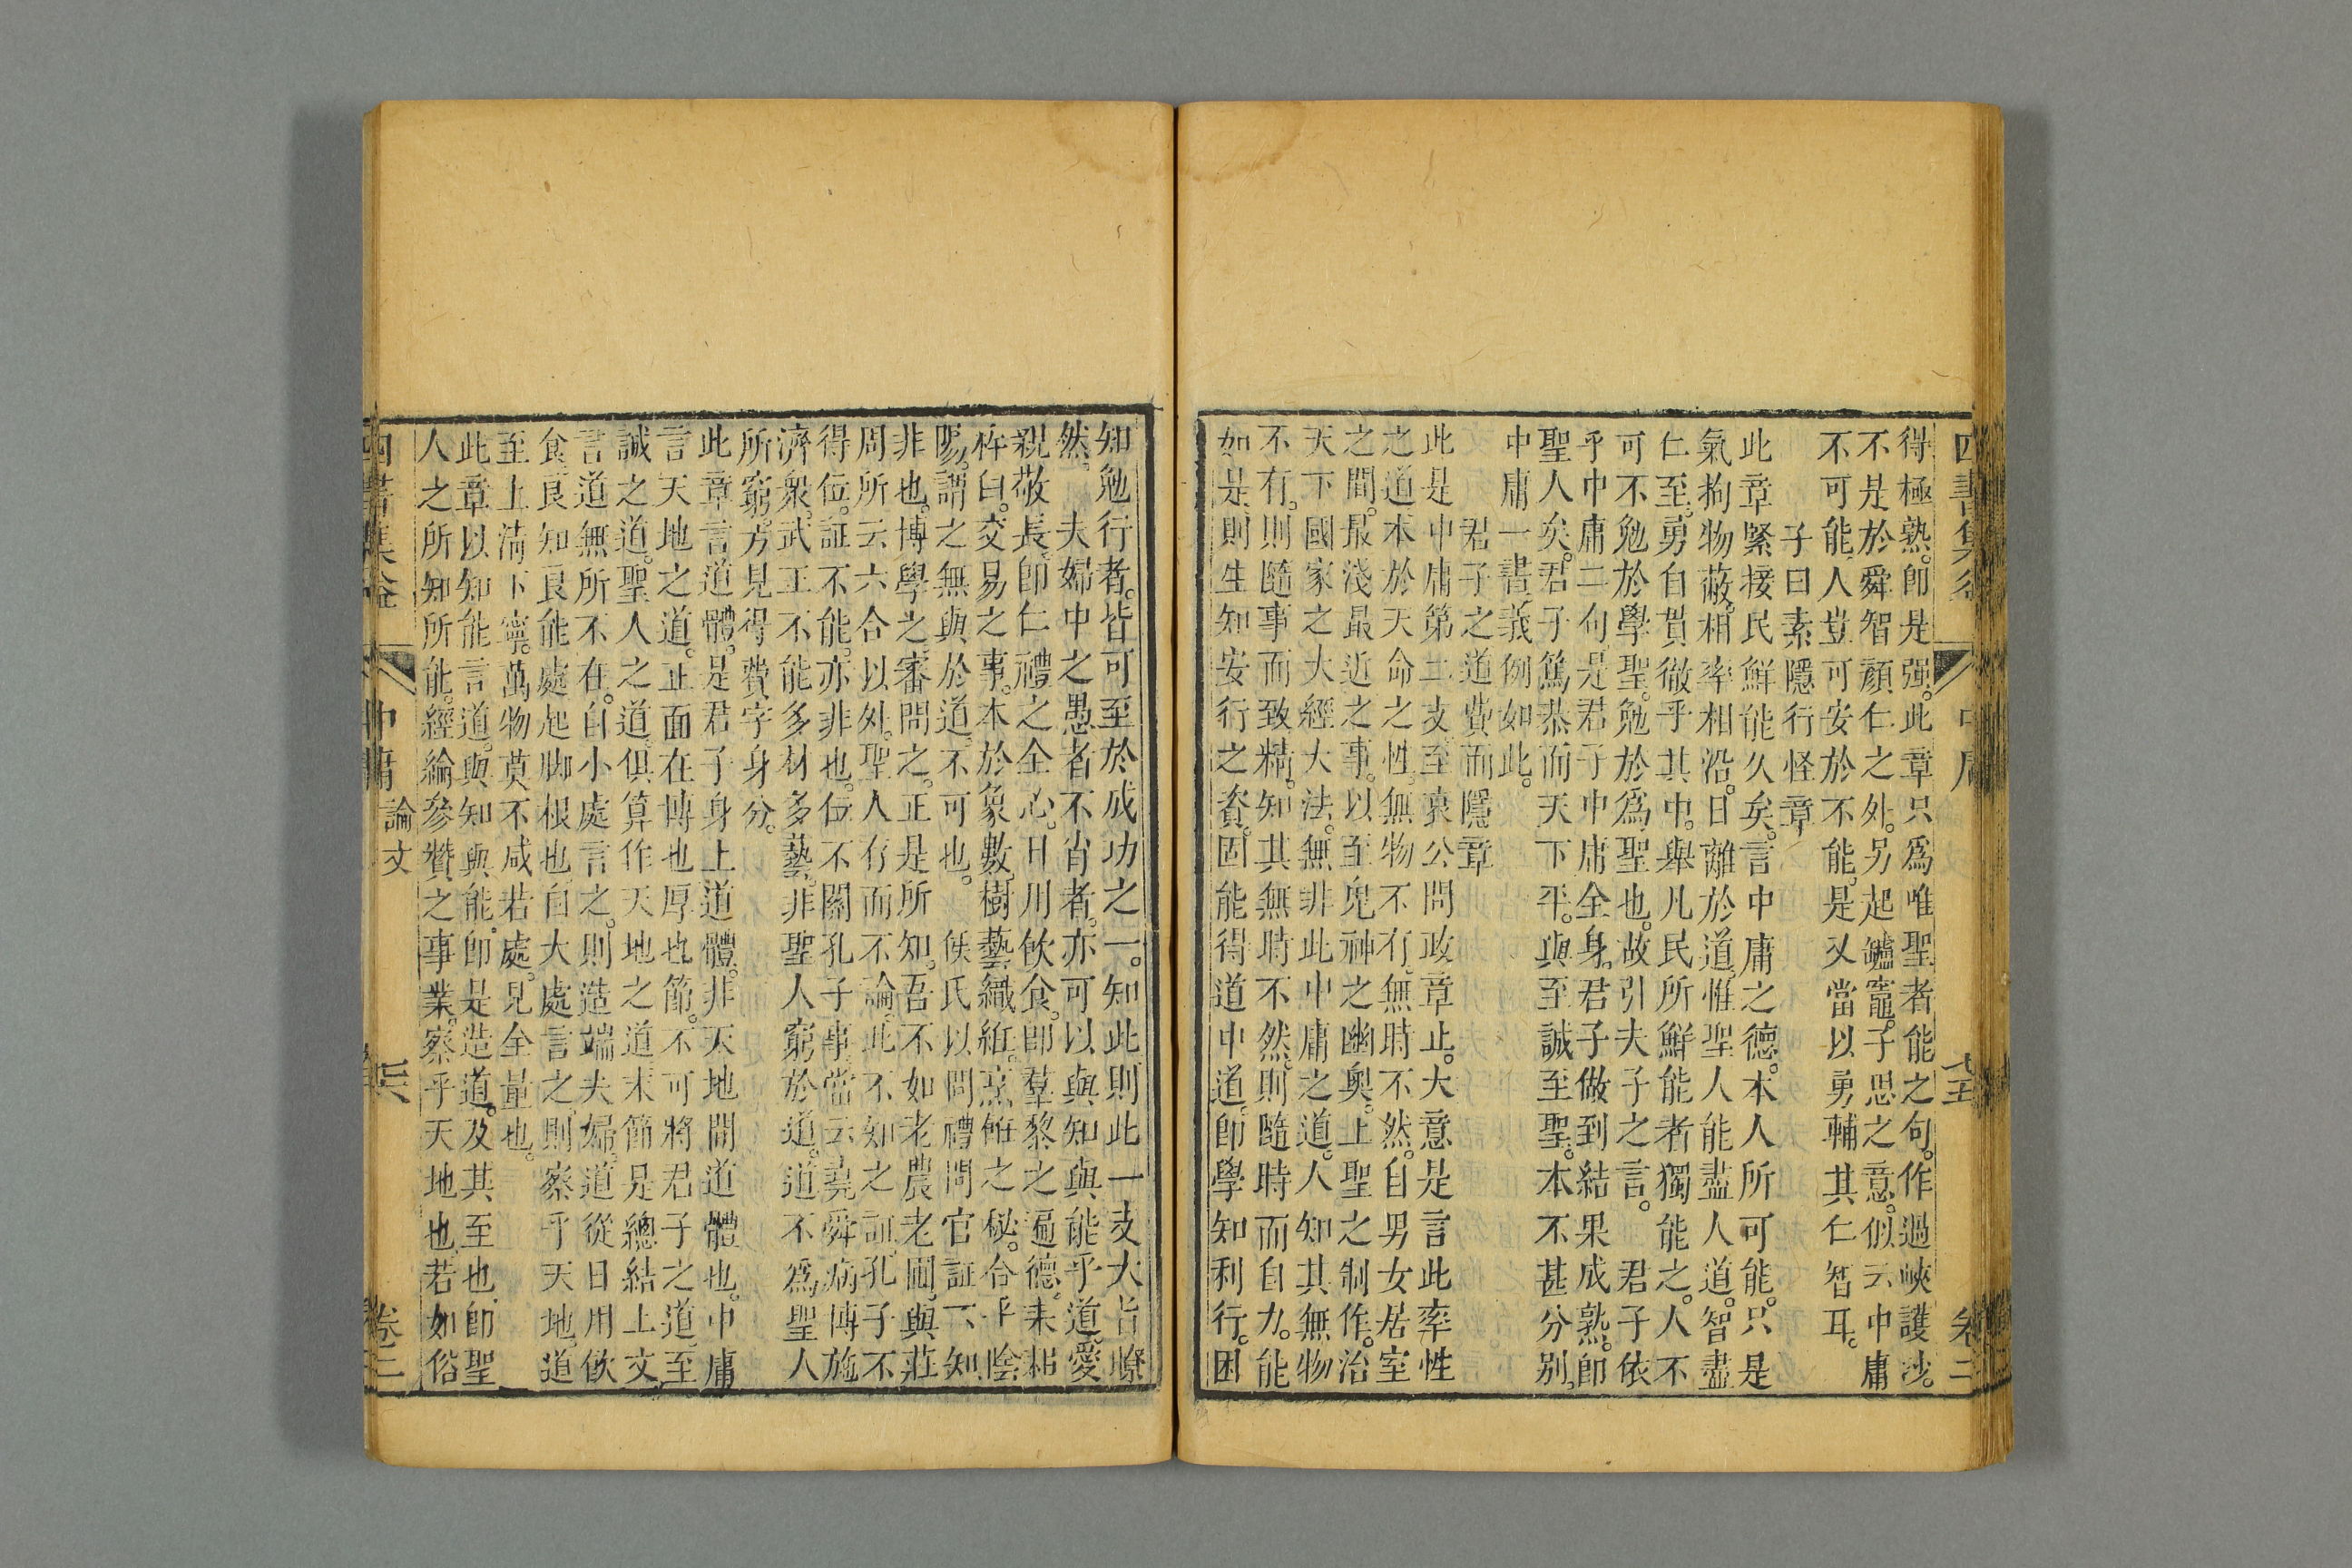 得極熟。卽是强。此章只爲唯聖者能之句。作過峽護沙。
不是於舜智顏仁之外。另起鑪竈。子思之意。似云中庸
不可能。人豈可安於不能。是又當以勇輔其仁智耳。
子曰素隱行怪章
此章緊接民鮮能久矣。言中庸之德。本人所可能。只是
氣拘物蔽。相率相沿。日離於道。惟聖人能盡人道。智盡
仁至。勇自貫徹乎其中。舉凡民所鮮能者獨能之。人不
可不勉於學聖。勉於爲聖也。故引夫子之言。 君子依
乎中庸二句。是君子中庸全身。君子做到結果成熟。卽
聖人矣。君子篤恭而天下平。與至誠至聖。本不甚分别。
中庸一書義例如此。
君子之道費而隱章
此是中庸第二支至哀公問政章止。大意是言此率性
之道本於天命之性。無物不有。無時不然。自男女居室
之間。最淺最近之事。以至鬼神之幽奧。上聖之制作。治
天下國家之大經大法。無非此中庸之道。人知其無物
不有。則隨事而致精。知其無時不然。則隨時而自力。能
如是。則生知安行之資。固能得道中道。卽學知利行。困
知勉行者。皆可至於成功之一。知此則此一支大旨瞭
然。 夫婦中之愚者不肖者。亦可以與知與能乎道。愛
親敬長。卽仁禮之全心。日用飲食。卽羣黎之遍德。耒耜
杵臼。交易之事。本於象數。樹藝織絍。烹飪之秘。合乎陰
陽。謂之無與於道。不可也。 侯氏以問禮問官証不知。
非也。博學之。審問之。正是所知。吾不如老農老圃。與莊
周所云六合以外。聖人存而不論。此不知之証。孔子不
得位。証不能。亦非也。位不關孔子事。當云堯舜病博施
濟衆。武王不能多材多藝。非聖人窮於道。道不爲聖人
所窮。方見得費字身分。
此章言道體。是君子身上道體。非天地間道體也。中庸
言天地之道。止面在博也厚也節。不可將君子之道。至
誠之道。聖人之道。俱算作天地之道。末節是總結上文
言道無所不在。自小處言之。則造端夫婦。道從日用飲
食。良知良能處起脚根也。自大處言之。則察乎天地。道
至上満下寧。萬物莫不咸若處。見全量也。
此章以知能言道。與知與能。卽是造道。及其至也。卽聖
人之所知所能。經綸參贊之事業。察乎天地也。若如俗
四書集益 中庸 卷二
四書集益 中庸 論文 卷二